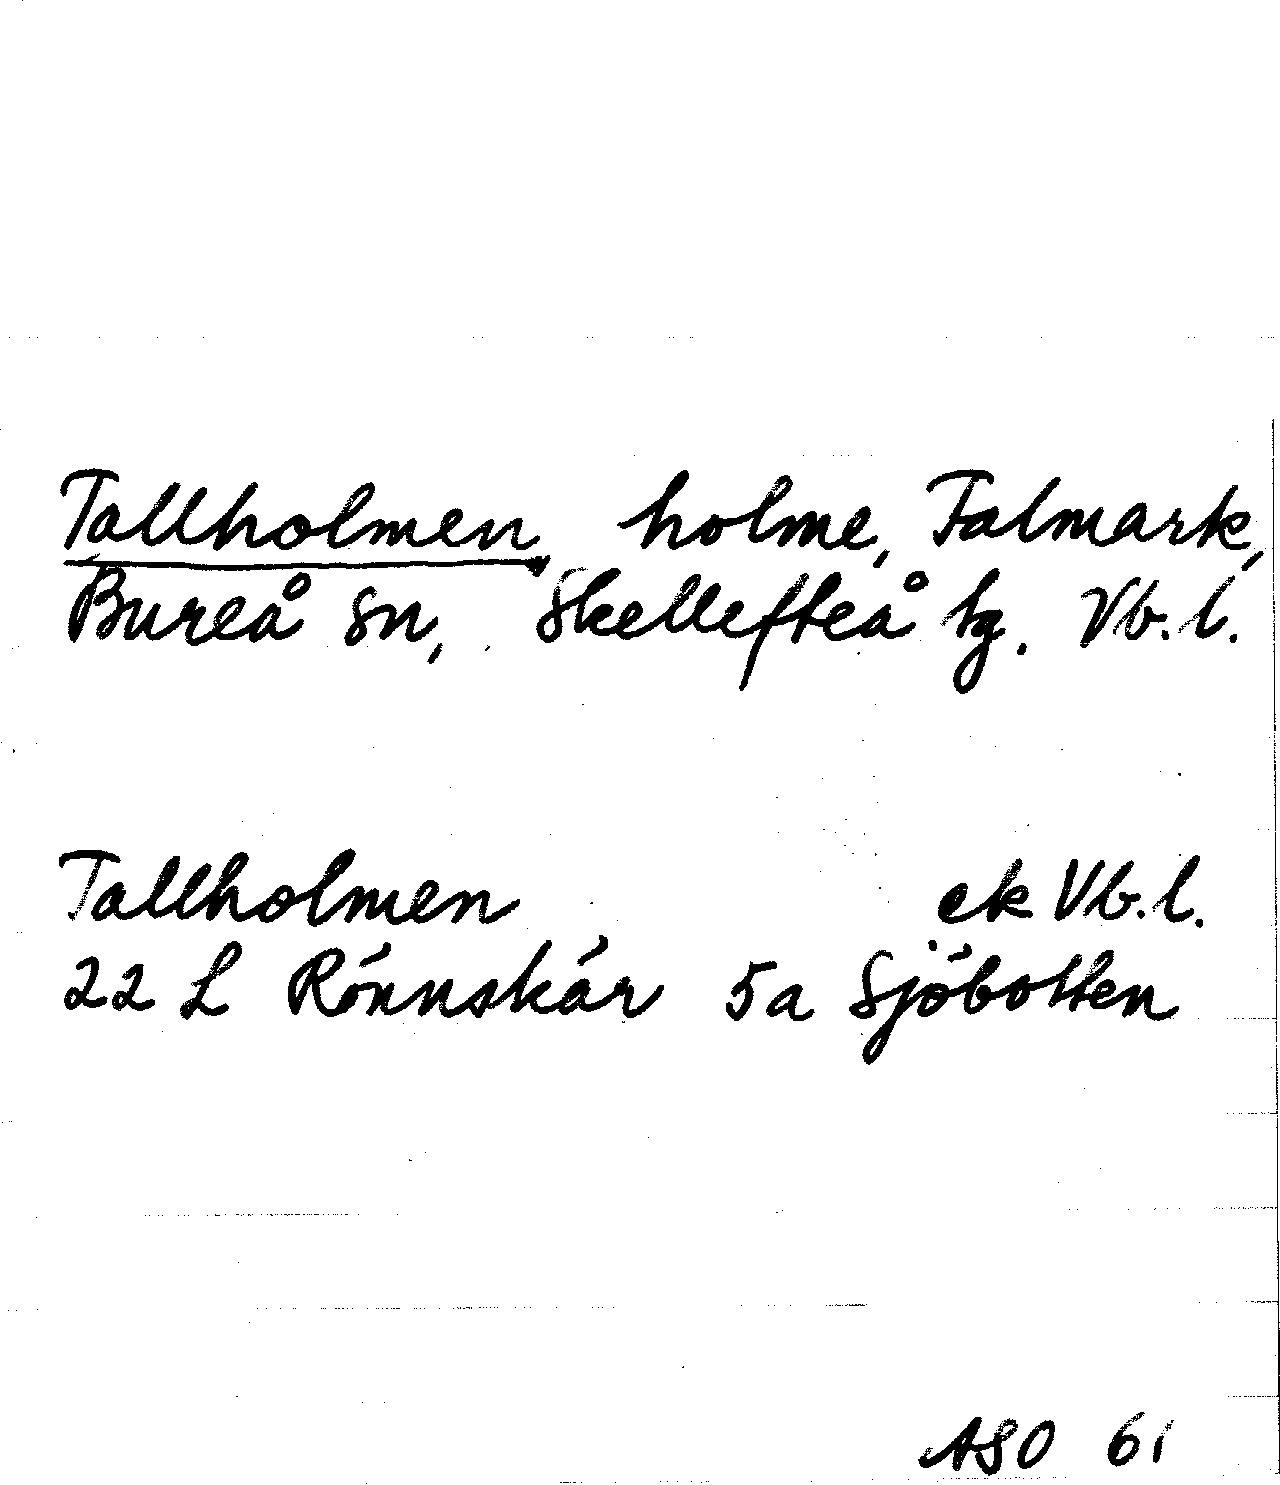 Tallholmen, holme, Falmark,
Bureå sn, Skellefteå tg. Vb. l.
Tallholmen ek Vb. l.
22 L Rönnskär 5a Sjöbotten
ASO 61